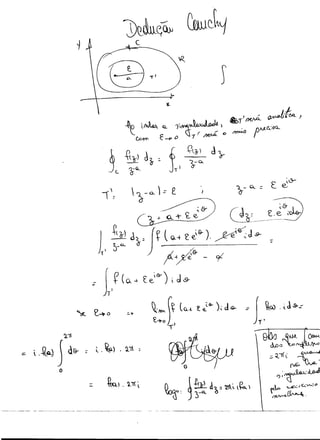 Dedução Cauchy
y
C
R
ε
a
Γ'
x
∫
Ao isolar a singularidade, Γ' será analítica,
com ε→0 Γ' será o mais precisa
∮_C f(z)/(z-a) dz = ∮_Γ' f(z)/(z-a) dz
Γ': |z-a| = ε ; z-a = ε e^{iθ}
z = a + εe^{iθ} dz = ε.e^{iθ} idθ
∫_Γ' f(z)/(z-a) dz = ∫ f(a+εe^{iθ}). εe^{iθ}.i dθ / a+εe^{iθ} - a =
= ∫_Γ' f(a+εe^{iθ}) i dθ
se ε→0 => lim_{ε→0} ∫_Γ' f(a+εe^{iθ}) i dθ = ∫_Γ' f(a) . i dθ =
= i.f(a) ∫_0^{2π} dθ = i.f(a). 2π =
= f(a). 2πi
Logo: ∮ f(z)/(z-a) dz = 2πi f(a)
Obs que
dos complexos
= 2πi
não
singularidad
pelo raciocínio